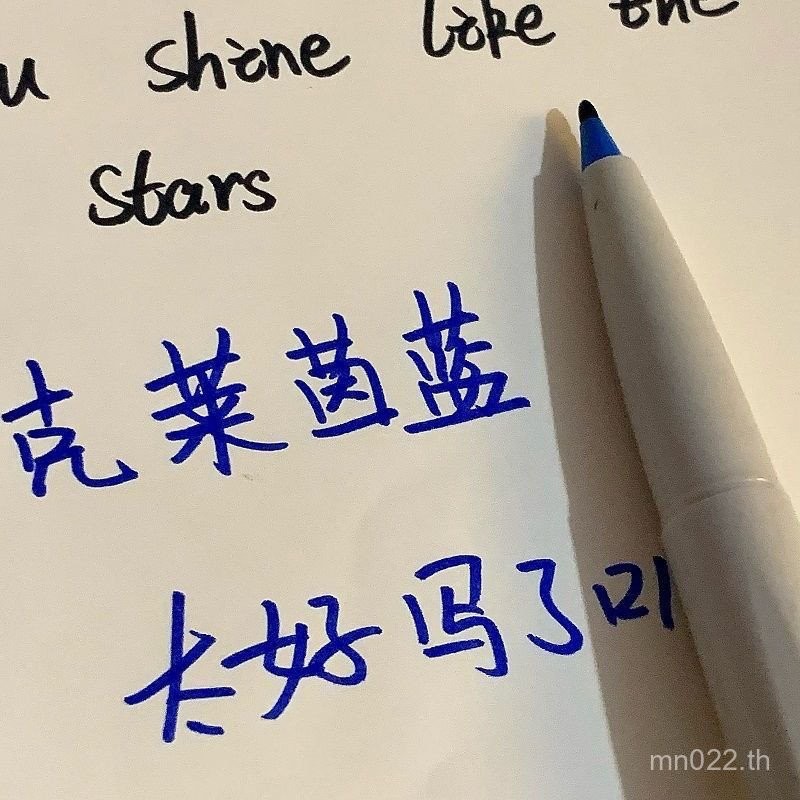 u shine like the
stars
克莱茵蓝
太好写了
mn022.th